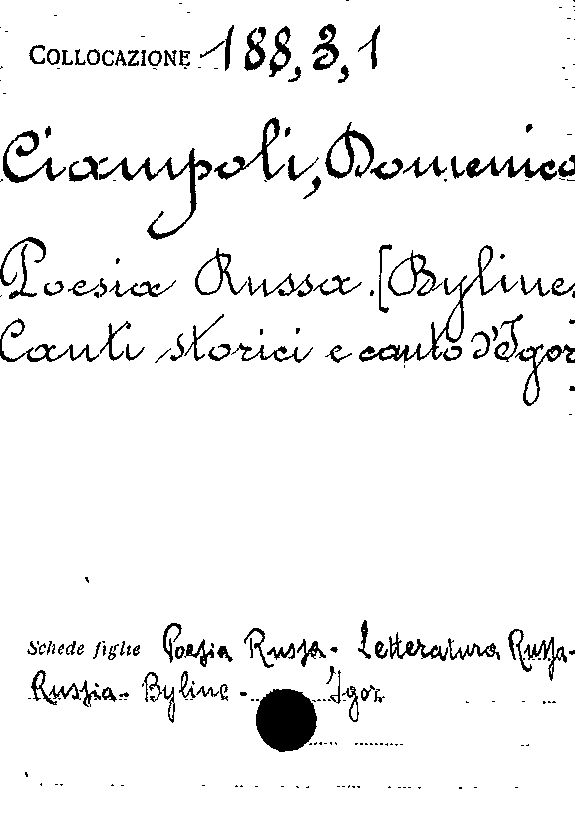 COLLOCAZIONE 188,3,1
Ciampoli, Domenico
Poesia Russa. [Byline,
Canti storici e canto d'Igor
Schede figlie Poesia Russa. Letteratura Russa-
Russia- Byline - Igor